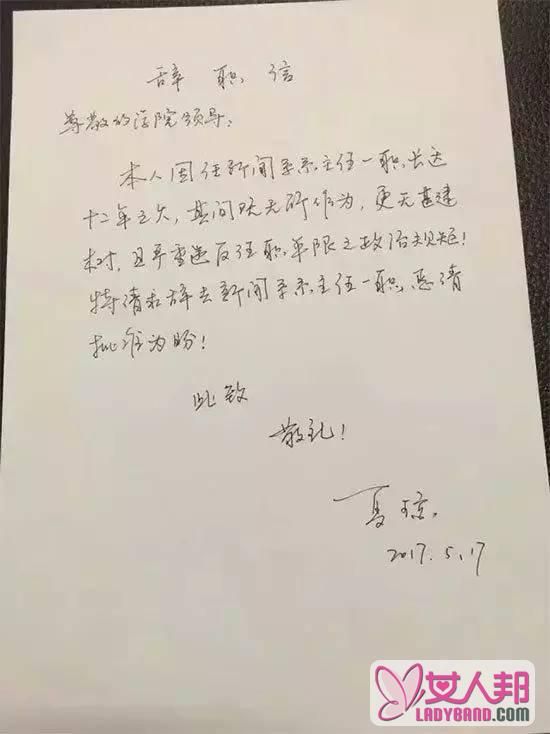 辞职信
尊敬的学院领导：
本人因任新闻系系主任一职长达
十二年之久，其间既无所作为，更无甚建
树，且严重违反任职年限之政治规矩！
特请求辞去新闻系系主任一职，恳请
批准为盼！
此致
敬礼！
夏琼
2017.5.17
女人邦
LADYBAND.COM